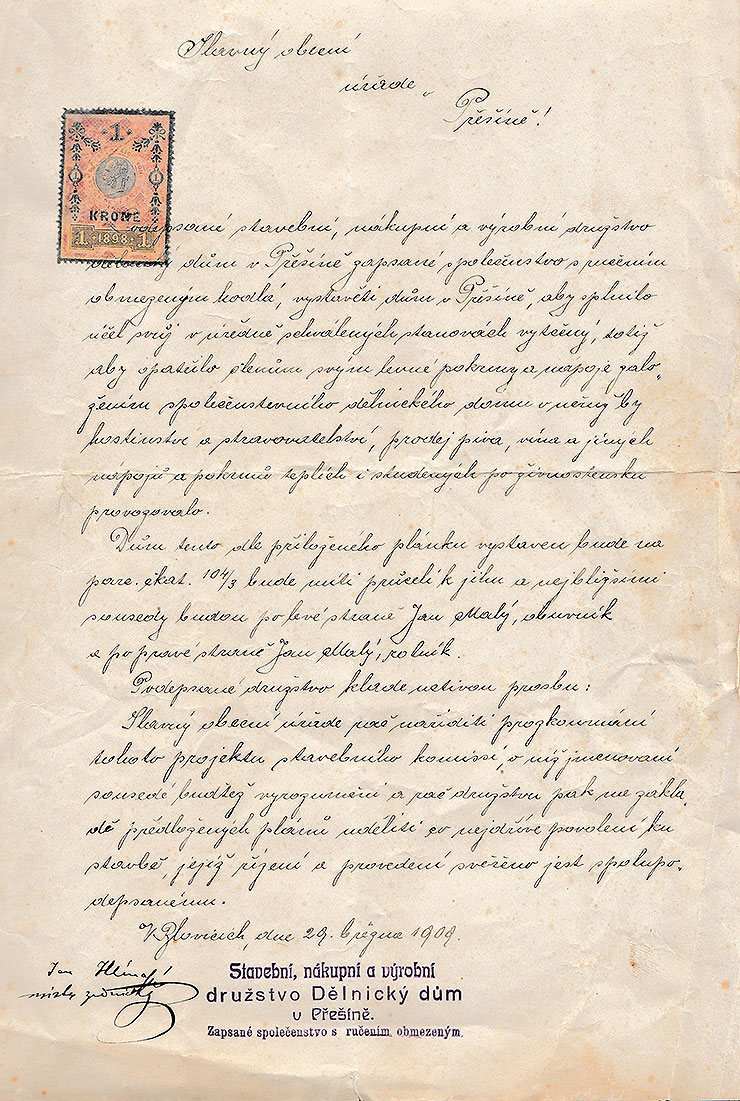 Slavný obecní
úřade v
Přešíně!
1
1 1
KRONE
1 · 1898 · 1
Podepsané stavební, nákupní a výrobní družstvo
dělnický dům v Přešíně zapsané společenstvo s ručením
obmezeným hodlá, vystavěti dům v Přešíně, aby splnilo
účel svůj v úředně schválených stanovách vytčený, totiž
aby opatřilo členům svým levné pokrmy a nápoje zalo-
žením společenstevního dělnického domu v němž by
hostinství a stravovatelství, prodej piva, vína a jiných
nápojů a pokrmů teplích i studených po živnostensku
provozovalo.
Dům tento dle přiloženého plánku vystaven bude na
parc. čkat. 104/3 bude míti průčelí k jihu a nejbližšími
sousedy budou po levé straně Jan Malý, obuvník
a po pravé straně Jan Malý, rolník.
Podepsané družstvo klade uctivou prosbu:
Slavný obecní úřade rač naříditi prozkoumání
tohoto projektu stavebního komissí, o níž jmenovaní
sousedé budtež vyrozumění a rač družstvu pak na zákla-
dě předložených plánů uděliti co nejdříve povolení ku
stavbě, jejíž řízení a provedení svěřeno jest spolupo-
depsanému.
V Blovicích, dne 29. března 1909.
Jan
mistr zednický
Stavební, nákupní a výrobní
družstvo Dělnický dům
v Přešíně.
Zapsané společenstvo s ručením obmezeným.